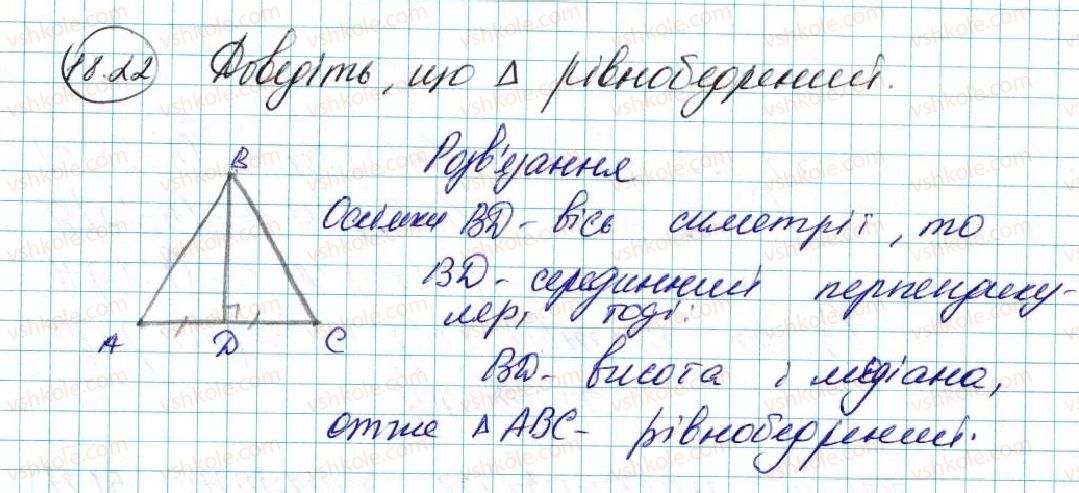 18.22 Доведіть, що Δ рівнобедрений.
B
Розв'язання
Оскільки BD - вісь симетрії, то
BD - серединний перпендику-
ляр, тоді:
A D C
BD - висота і медіана,
отже Δ ABC - рівнобедрений.